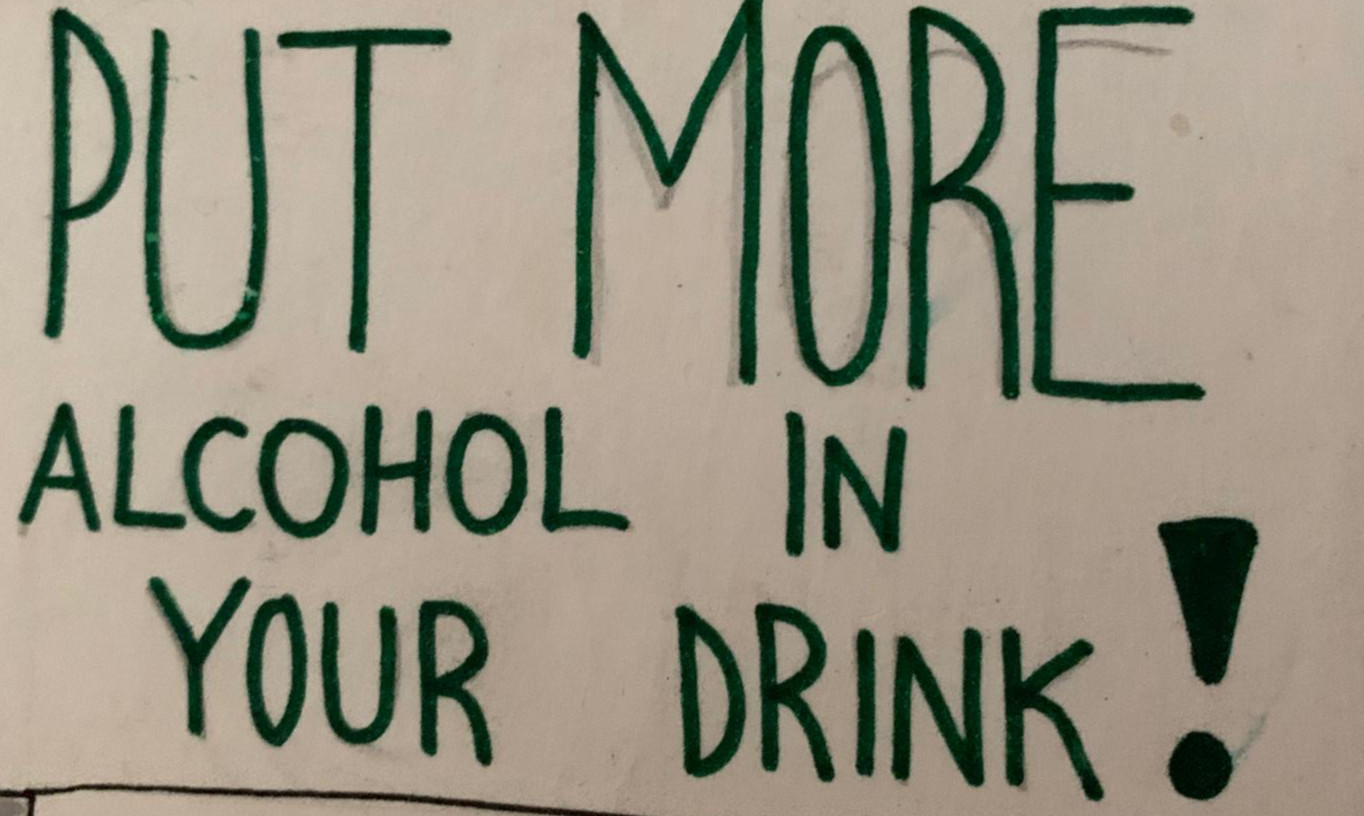 PUT MORE
ALCOHOL IN
YOUR DRINK!